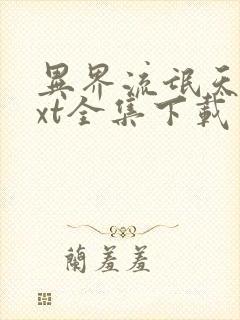 異界流氓天
xt全集下載
蘭羞羞